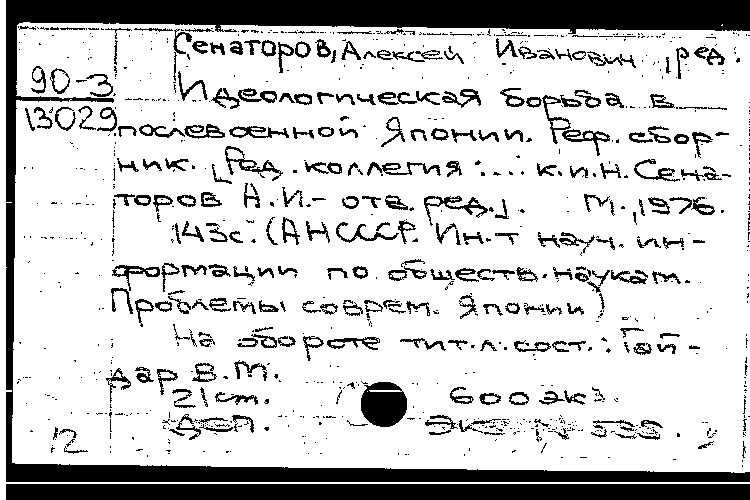 Сенаторов, Алексей Иванович, ред.
90-3
13029
Идеологическая борьба в
послевоенной Японии. Реф. сбор-
ник. [Ред. коллегия: ... к.и.н. Сена-
торов А.И. - отв. ред.]. М., 1976.
143с. (АН СССР. Ин-т науч. ин-
формации по обществ. наукам.
Проблемы соврем. Японии)
На обороте тит. л. сост.: Гай-
дар В.М.
21 ст. 600 экз.
ДСП. Экз. № 535.
12